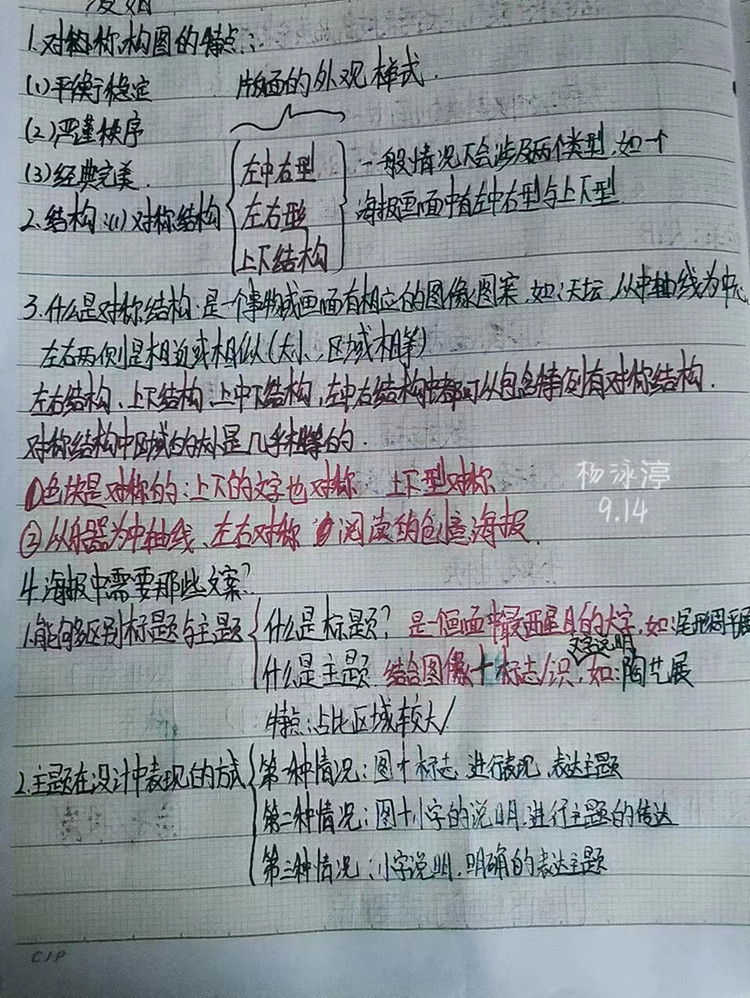 1.对称构图的特点:
(1)平衡稳定 版面的外观样式.
(2)严谨秩序
(3)经典完美.
左中右型 一般情况不会涉及两个类型,如一个
2.结构:(1)对称结构 左右形 海报画面中有左中右型与上下型
上下结构
3.什么是对称结构:是一个事物或画面有相应的图像、图案,如:天坛,从中轴线为中心
左右两侧是相近或相似(大小、区域相等)
左右结构、上下结构、上中下结构,左中右结构中都可从包含特例有对称结构.
对称结构中区域的大小是几乎相等的.
①色块是对称的:上下的文字也对称 上下型对称
②从乐器为中轴线、左右对称 阅读的创意海报.
杨泳渟
9.14
4.海报中需要那些文案?
1.能够区别标题与主题 什么是标题?是一个画面中最醒目的大字,如:
什么是主题 结合图像+标志/识,如:陶艺展
文字说明
特点:占比区域较大/
2.主题在设计中表现的方式 第一种情况:图+标志,进行表现,表达主题
第二种情况:图+小字的说明,进行主题的传达
第三种情况:小字说明,明确的表达主题
CJP